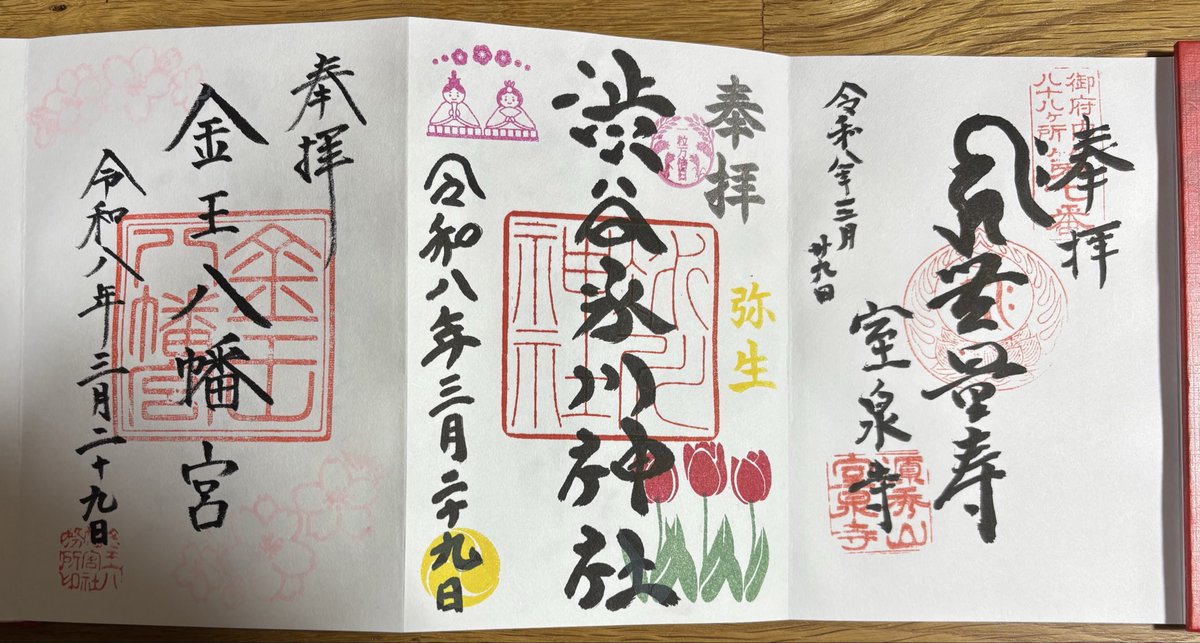 奉拝
無量寿
室泉寺
源秀山
室泉寺
令和八年三月
廿九日
奉拝
弥生
渋谷氷川神社
氷川
神社
令和八年三月二十九日
奉拝
金王八幡宮
金王
八幡宮
令和八年三月二十九日